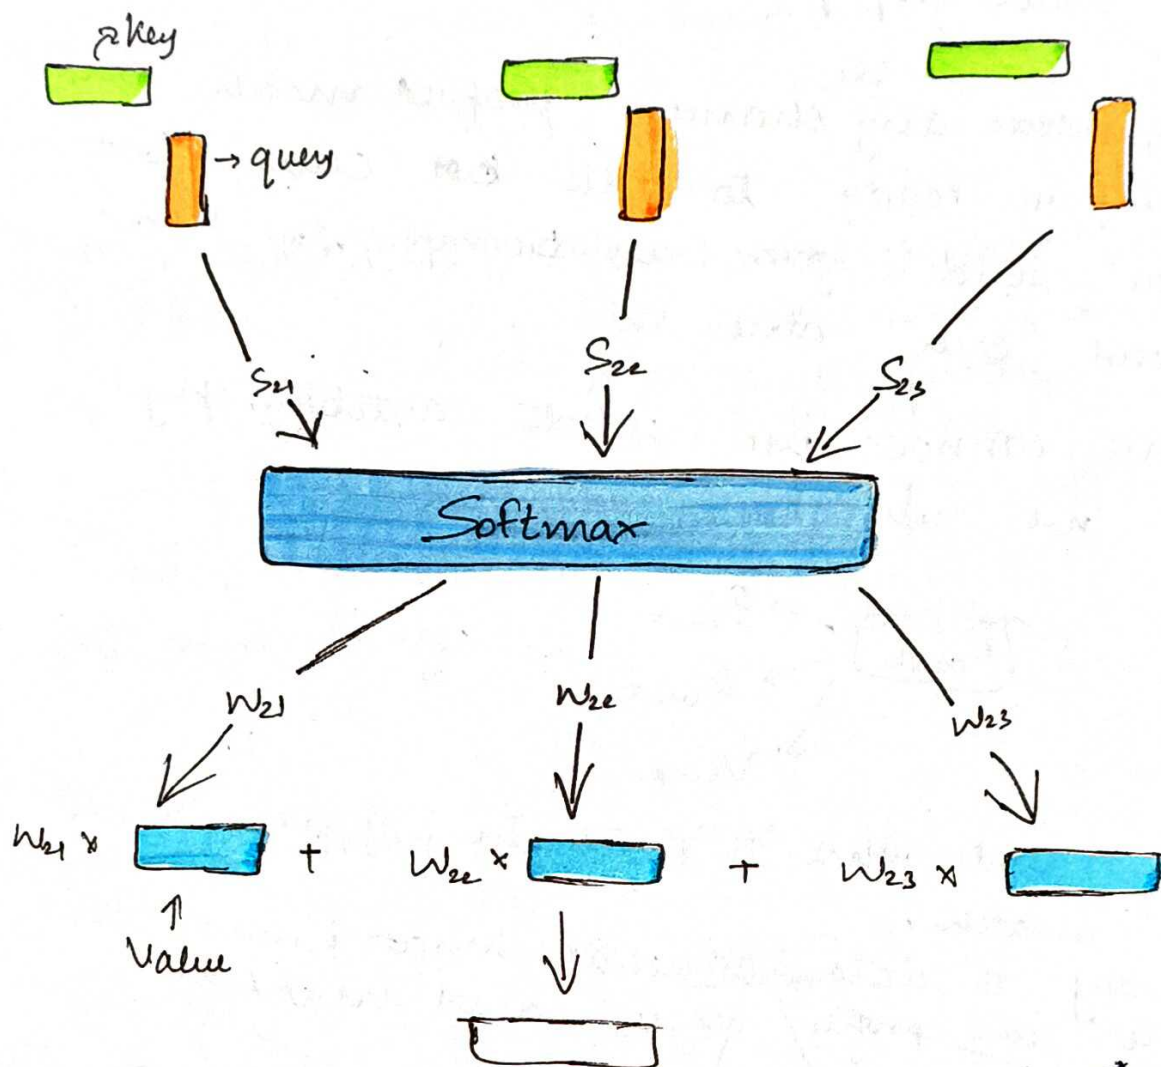 key
→ query
S21 S22 S23
Softmax
W21 W22 W23
W21 × + W22 × + W23 ×
↑
Value